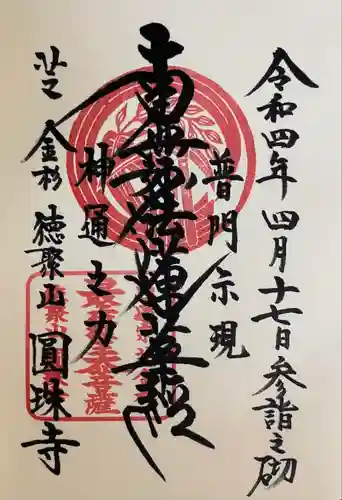 令和四年四月十七日参詣之砌
普門示現
南無妙法蓮華経
神通之力
芝金杉
徳聚山圓珠寺